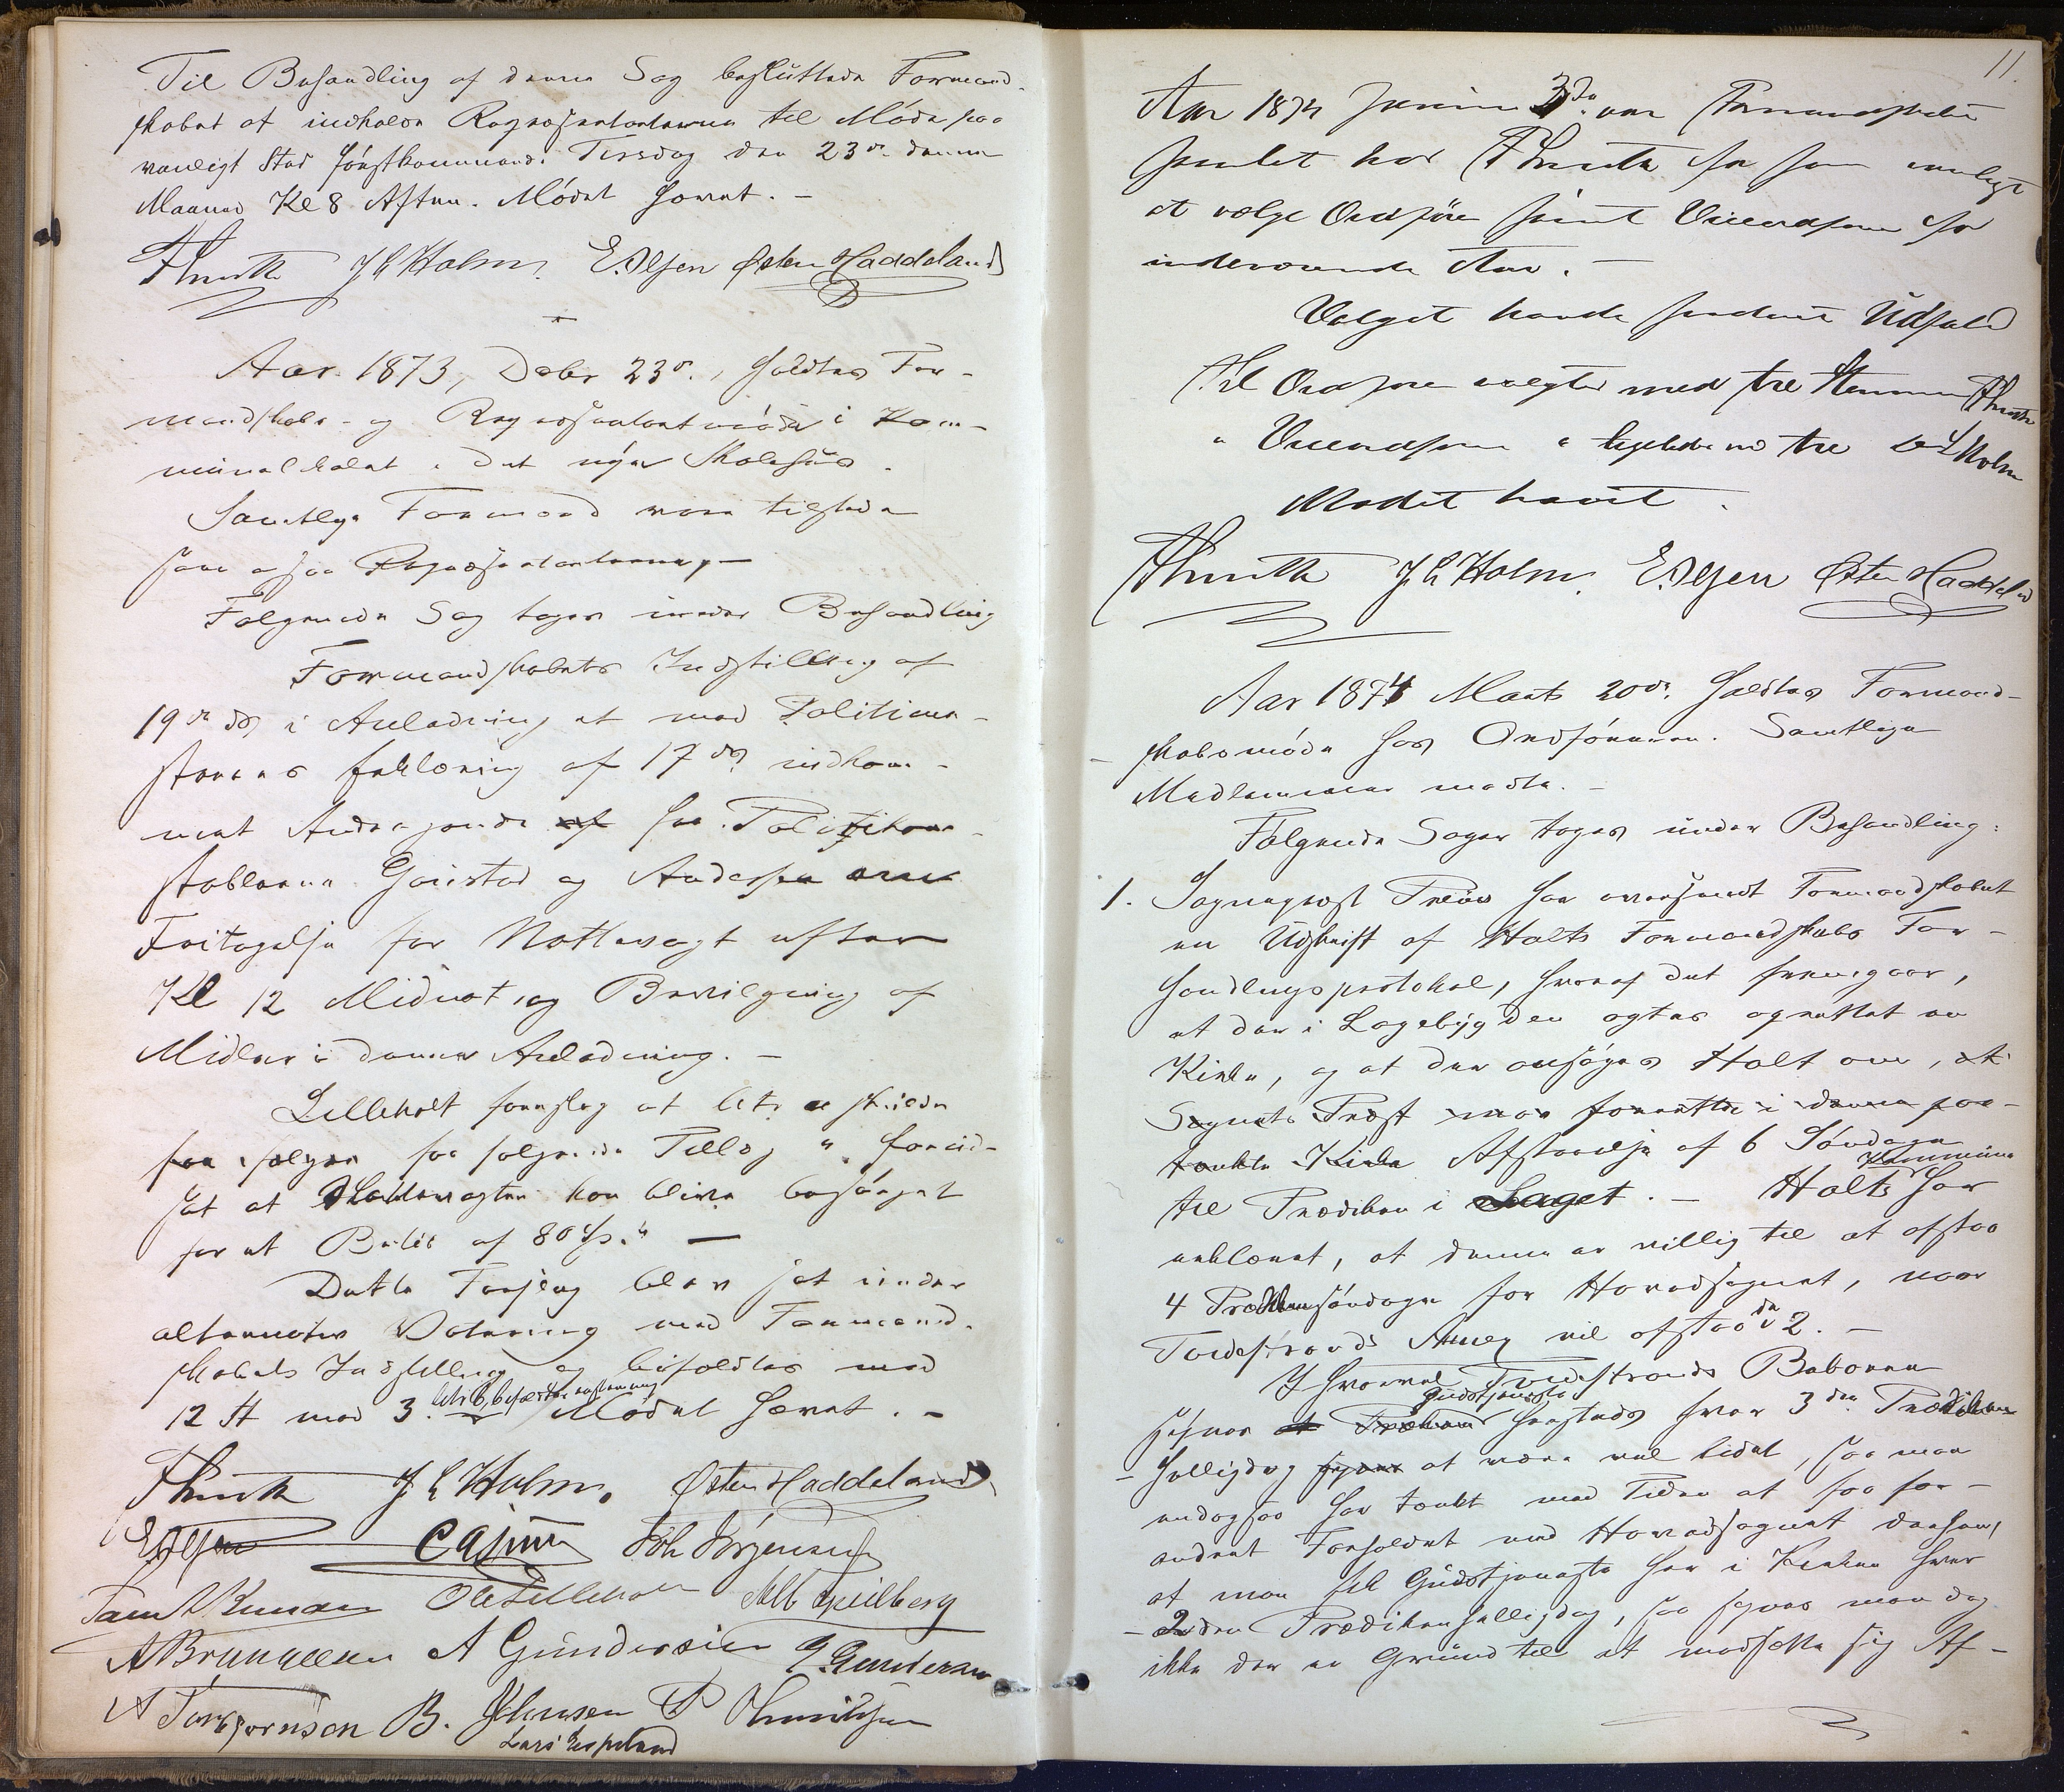 Til Behandling af denne Sag besluttede Formand-
skabet at indkalde Repræsentanterne til Møde paa
vanligt Sted førstkommende Tirsdag den 23de denne
Maaned Kl 8 Aften. Mødet hævet. –
JC Holm. E. Olsen Østen Haddeland
Aar 1873, Debr 23de, holdtes For-
mandskabs- og Repræsentantmøde i Kom-
munelokalet i det nye Skolehus.
Samtlige Formænd vare tilstede
som ogsaa Repræsentanterne, –
Følgende Sag toges under Behandling
Formandskabets Indstilling af
19de ds i Anledning at med Politime-
sterens Erklæring af 17de ds indkom-
met Andragende af fra Politikon-
stablerne Gjeustad og Andersen om
Fritagelse for Nattevagt efter
Kl 12 Midnat, og Bevilgning af
Midler i denne Anledning. –
Lilleholt foreslog at litr a skulde
faa følgende Tillæg "forud-
sat at Nattevagten kan blive besørget
for et Beløb af 80 Sp." –
Dette Forslag blev sat under
alternativ Votering med Formand-
skabets Indstilling og bifaldtes med
12 St mod 3. Mødet hævet. –
JC Holm. Østen Haddeland
E Olsen Joh Jørgensen
O Lilleholt Alb Speilberg
A Gundersen G. Gundersen
A Torbjørnsen B. Johnsen P Henriksen
Lars Espeland
11.
Aar 1874 Januar 3de var Formandskabet
samlet hos for som vanligt
at vælge Ordfører samt Viceordfører for
indeværende Aar. –
Valget havde saadant Udfald
Til Ordfører valgtes med tre Stemmer
" Viceordfører " ligeledes med tre do JC Holm
Mødet hævet.
JC Holm. E. Olsen Østen Haddeland
Aar 1874 Marts 20de holdtes Formand-
skabsmøde hos Ordføreren. Samtlige
Medlemmer mødte. –
Følgende Sager toges under Behandling:
1. Sogneprest Preus har oversendt Formandskabet
en Udskrift af Holts Formandskabs For-
handlingsprotokol, hvoraf det fremgaar,
at der i Lagebygden agtes oprettet en
Kirke, og at der ansøges Holt om, at
Sognets Præst maa forrette i denne paa-
tænkte Kirke Afstaaelse af 6 Søndage
til Prædiken i Laget. – Holts Kommune har
erklæret, at denne er villig til at afstaa
4 Prædikensøndage for Hovedsognet, naar
Tvedestrands Anney vil afstaa de 2. –
I hvorvel Tvedestrands Beboere
synes at Prædiken Gudstjeneste hersteds hver 3die Prædiken
– helligdag synes at være vel lidet, saa man
endogsaa har tænkt med Tiden at faa for-
andret Forholdet med Hovedsognet derhen,
at man fik Gudstjeneste her i Kirken hver
– anden Prædikenhelligdag, saa synes man dog
ikke der er Grund til at modsætte sig Af-